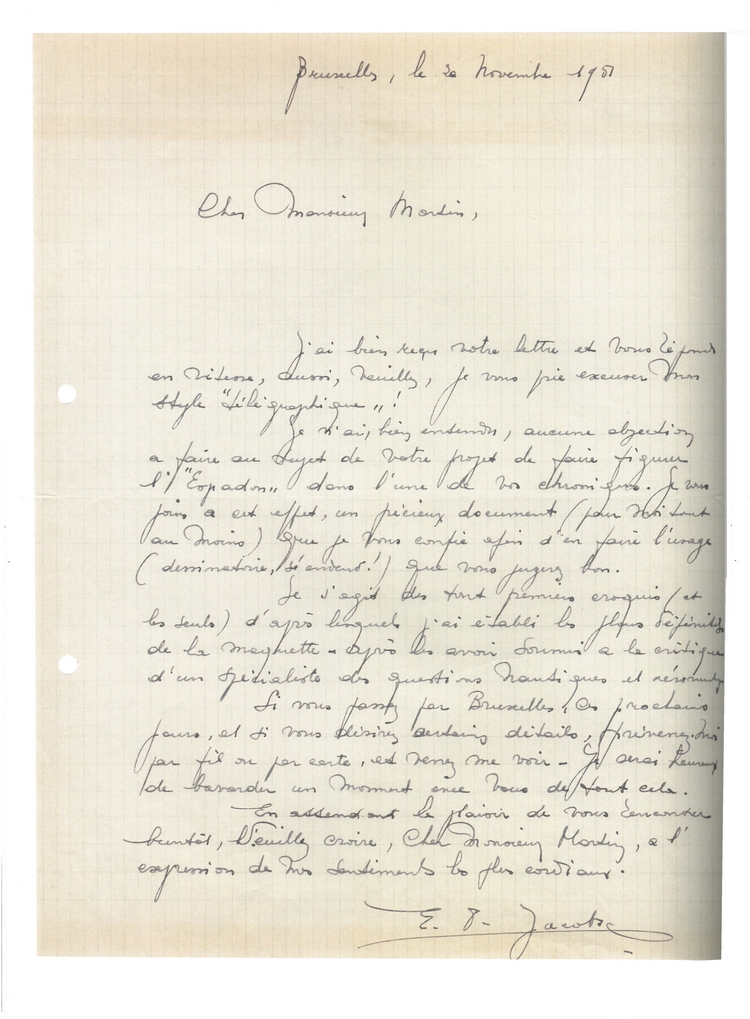 Bruxelles, le 20 Novembre 1951
Cher Monsieur Martin,
J'ai bien reçu votre lettre et vous réponds
en vitesse, aussi, veuillez, je vous prie excuser mon
style "télégraphique" !
Je n'ai, bien entendu, aucune objection
a faire au sujet de votre projet de faire figurer
l'"Espadon" dans l'une de vos chroniques. Je vous
joins a cet effet, un précieux document (pour moi tout
au moins) que je vous confie afin d'en faire l'usage
(dessinatoire, s'entend!) que vous jugerez bon.
Il s'agit des tout premiers croquis (et
les seuls) d'après lesquels j'ai établi les plans définitifs
de la maquette - après les avoir soumis a la critique
d'un spécialiste des questions nautiques et
Si vous passez par Bruxelles, ces prochains
jours, et si vous désirez certains détails, prévenez-moi
par fil ou par carte, et venez me voir - Je serai heureux
de bavarder un moment avec vous de tout cela.
En attendant le plaisir de vous rencontrer
bientôt, Veuillez croire, Cher Monsieur Martin, a l'
expression de mes sentiments les plus cordiaux.
E. P. Jacobs